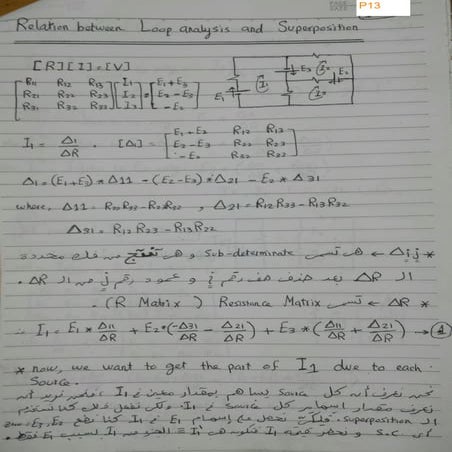 P13
Relation between Loop analysis and Superposition
[R][I]=[V]
[R11 R12 R13 [I1 [E1+E3
R21 R22 R23 I2 = E2-E3
R31 R32 R33] I3] -E2]
E1 I1 E3 I2 E2 I3
I1 = Δ1/ΔR , [Δ1] = [E1+E3 R12 R13
E2-E3 R22 R23
-E2 R32 R33]
Δ1=(E1+E3)*Δ11 -(E2-E3)*Δ21 -E2*Δ31
where, Δ11= R22R33-R23R32 , Δ21=R12R33-R13R32
Δ31= R12R23-R13R22
* Δij ← هى تسمى Sub-determinate وهى تنتج من فك محددة
الـ ΔR بعد حذف صف رقم i و عمود رقم j من الـ ΔR.
* ΔR ← تسمى Resistance Matrix (R Matrix).
∴ I1= E1*Δ11/ΔR + E2*(-Δ31/ΔR - Δ21/ΔR) + E3*(Δ11/ΔR + Δ21/ΔR) →①
* now, we want to get the part of I1 due to each
Source.
نحن نعرف أن كل Source يساهم بمقدار معين فى I1 نريد أن
نعرف مقدار إسهام كل Source فى I1 ولكن نفعل ذلك كنا نستخدم
الـ Superposition نحصل على إسهام E1 فى I1 كنا نضع E2, E3
S.C و نحضر قيمة I1 فتكون هى I1 = الجزء من I1 بسبب E1 فقط.